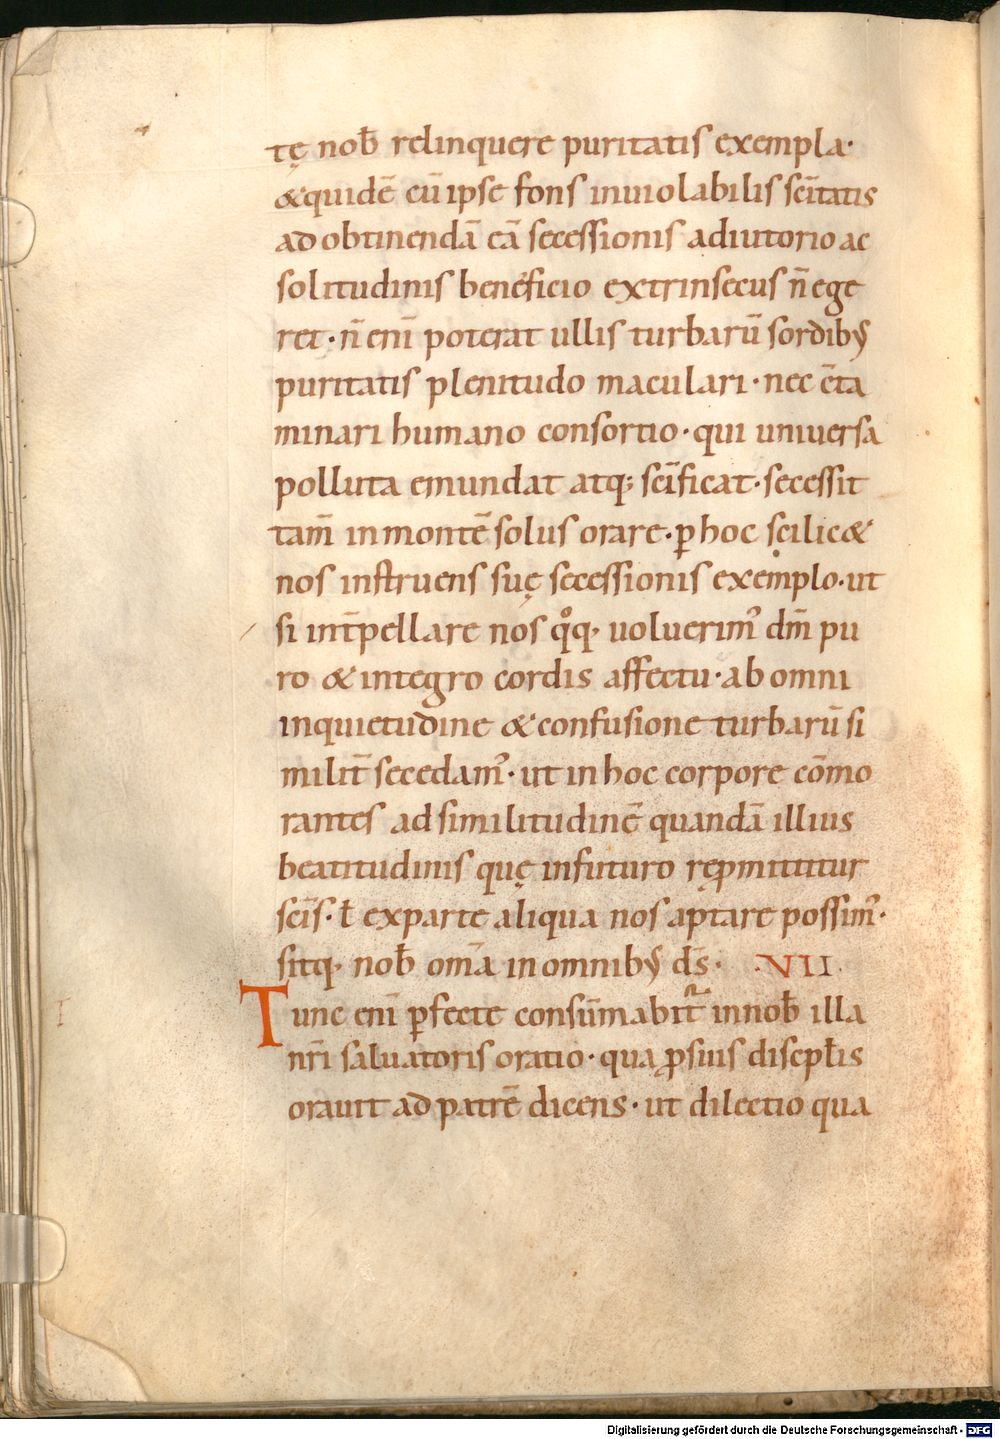 tę nob̄ relinquere puritatis exempla·
&quidē cū ipse fons inuiolabilis sc̄itatis
ad obtinendā eā secessionis adiutorio ac
solitudinis beneficio extrinsecus n̄ ege
ret· n̄ enī poterat ullis turbarū sordibꝰ
puritatis plenitudo maculari· nec c̄ta
minari humano consortio· qui uniuersa
polluta emundat atq; sc̄ificat· secessit
tam̄ in montē solus orare· ꝑ hoc scilic&
nos instruens suę secessionis exemplo· ut
si int̄pellare nos qͦq· uoluerimꝰ dm̄ pu
ro & integro cordis affectu· ab omni
inquietudine & confusione turbarū si
milit̄ secedamꝰ· ut in hoc corpore cōmo
rantes ad similitudinē quandā illius
beatitudinis quę in futuro reꝓmittitur
sc̄is· ł ex parte aliqua nos aptare possimꝰ·
sitq· nob̄ om̄a in omnibꝰ ds̄· ·VII·
Tunc enī ꝑfecte consūmabit᷑ in nob̄ illa
nr̄i saluatoris oratio· qua ꝓ suis discipłis
orauit ad patrē dicens· ut dilectio qua
Digitalisierung gefördert durch die Deutsche Forschungsgemeinschaft - DFG